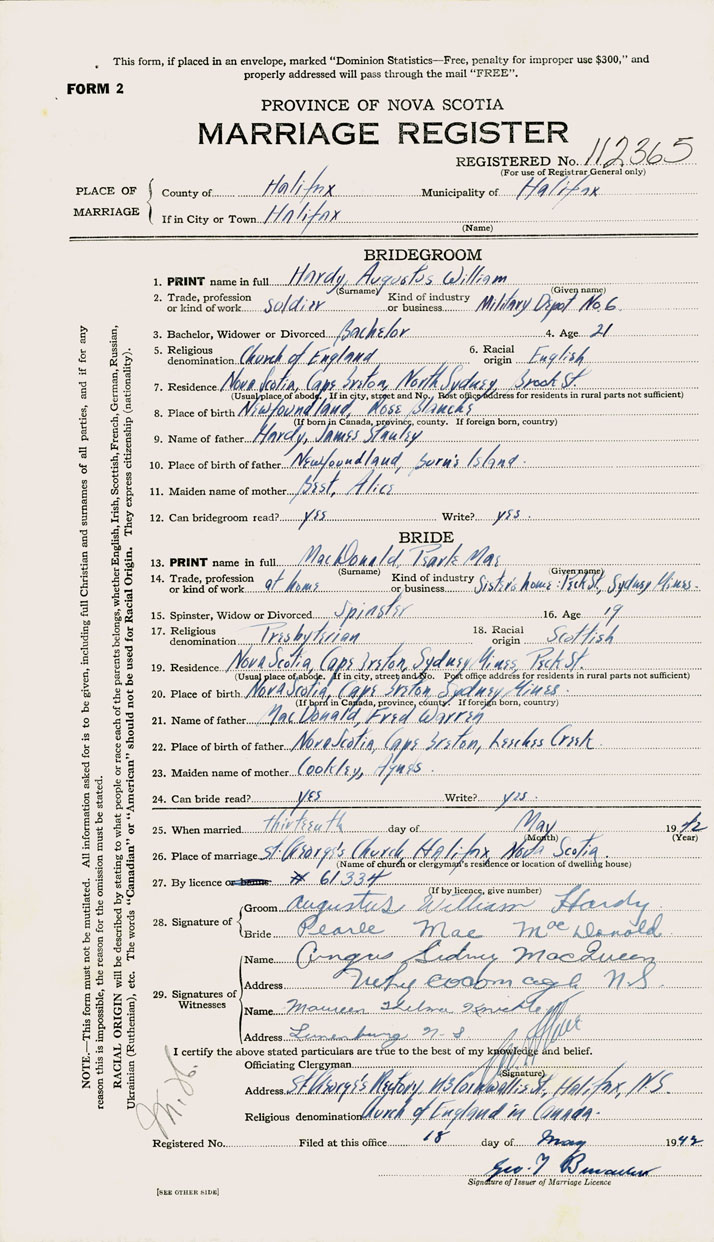 This form, if placed in an envelope, marked "Dominion Statistics—Free, penalty for improper use $300," and
properly addressed will pass through the mail "FREE".
FORM 2
PROVINCE OF NOVA SCOTIA
MARRIAGE REGISTER
REGISTERED No. 112365
(For use of Registrar General only)
PLACE OF MARRIAGE
County of Halifax Municipality of Halifax
If in City or Town Halifax
(Name)
BRIDEGROOM
1. PRINT name in full Hardy, Augustus William
(Surname) (Given name)
2. Trade, profession or kind of work soldier Kind of industry or business Military Depot No. 6.
3. Bachelor, Widower or Divorced Bachelor 4. Age 21
5. Religious denomination Church of England 6. Racial origin English
7. Residence Nova Scotia, Cape Breton, North Sydney, Brook St.
(Usual place of abode. If in city, street and No. Post office address for residents in rural parts not sufficient)
8. Place of birth Newfoundland, Rose Blanche
(If born in Canada, province, county. If foreign born, country)
9. Name of father Hardy, James Stanley
10. Place of birth of father Newfoundland, Burn's Island.
11. Maiden name of mother Best, Alice
12. Can bridegroom read? yes Write? yes.
BRIDE
13. PRINT name in full MacDonald, Pearle Mae
(Surname) (Given name)
14. Trade, profession or kind of work at home Kind of industry or business Sister's home: Peck St, Sydney Mines.
15. Spinster, Widow or Divorced Spinster 16. Age 19
17. Religious denomination Presbyterian 18. Racial origin Scottish
19. Residence Nova Scotia, Cape Breton, Sydney Mines, Peck St.
(Usual place of abode. If in city, street and No. Post office address for residents in rural parts not sufficient)
20. Place of birth Nova Scotia, Cape Breton, Sydney Mines.
(If born in Canada, province, county. If foreign born, country)
21. Name of father MacDonald, Fred Warren
22. Place of birth of father Nova Scotia, Cape Breton, Leeches Creek.
23. Maiden name of mother Cookley, Agnes.
24. Can bride read? yes Write? yes.
25. When married thirteenth day of May 1942
(Month) (Year)
26. Place of marriage St. George's Church, Halifax, Nova Scotia.
(Name of church or clergyman's residence or location of dwelling house)
27. By licence or banns # 61334
(If by licence, give number)
28. Signature of
Groom Augustus William Hardy
Bride Pearle Mae MacDonald
29. Signatures of Witnesses
Name Angus Sidney MacQueen
Address Whycocomagh N.S.
Name Maureen Thelma
Address Lunenburg N-S
I certify the above stated particulars are true to the best of my knowledge and belief.
Officiating Clergyman
(Signature)
Address St. George's Rectory, Cornwallis St., Halifax, N.S.
Religious denomination Church of England in Canada.
Registered No. Filed at this office 18 day of May 1942
Geo. T
Signature of Issuer of Marriage Licence
[SEE OTHER SIDE]
NOTE.—This form must not be mutilated. All information asked for is to be given, including full Christian and surnames of all parties, and if for any
reason this is impossible, the reason for the omission must be stated.
RACIAL ORIGIN will be described by stating to what people or race each of the parents belongs, whether English, Irish, Scottish, French, German, Russian,
Ukrainian (Ruthenian), etc. The words "Canadian" or "American" should not be used for Racial Origin. They express citizenship (nationality).